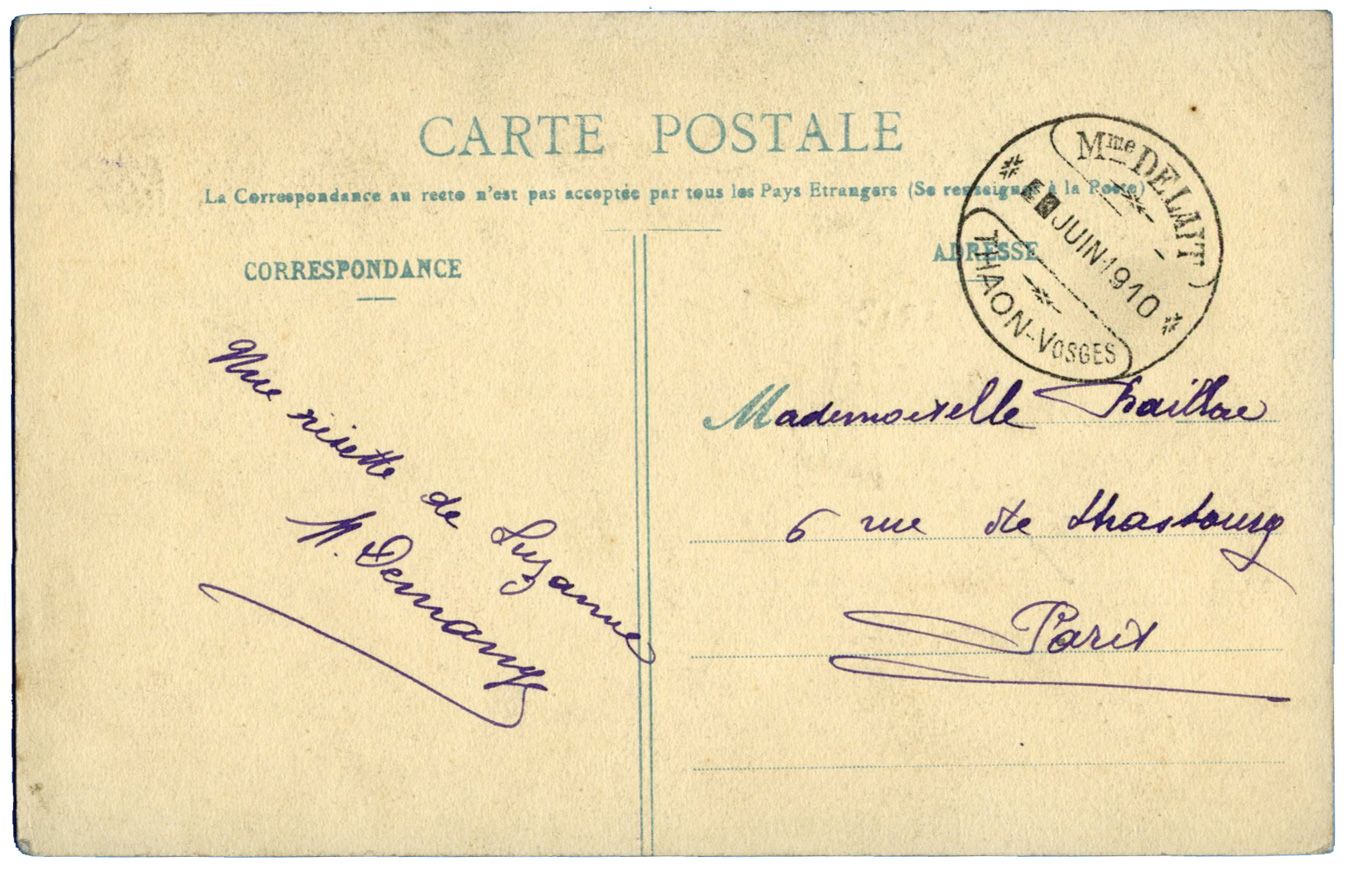 CARTE POSTALE
La Correspondance au recto n'est pas acceptée par tous les Pays Etrangers (Se renseigner à la Poste)
CORRESPONDANCE
ADRESSE
Mme DELAIT
JUIN 1910
THAON-VOSGES
risette de Suzanne
Mademoiselle
6 rue de Strasbourg
Paris